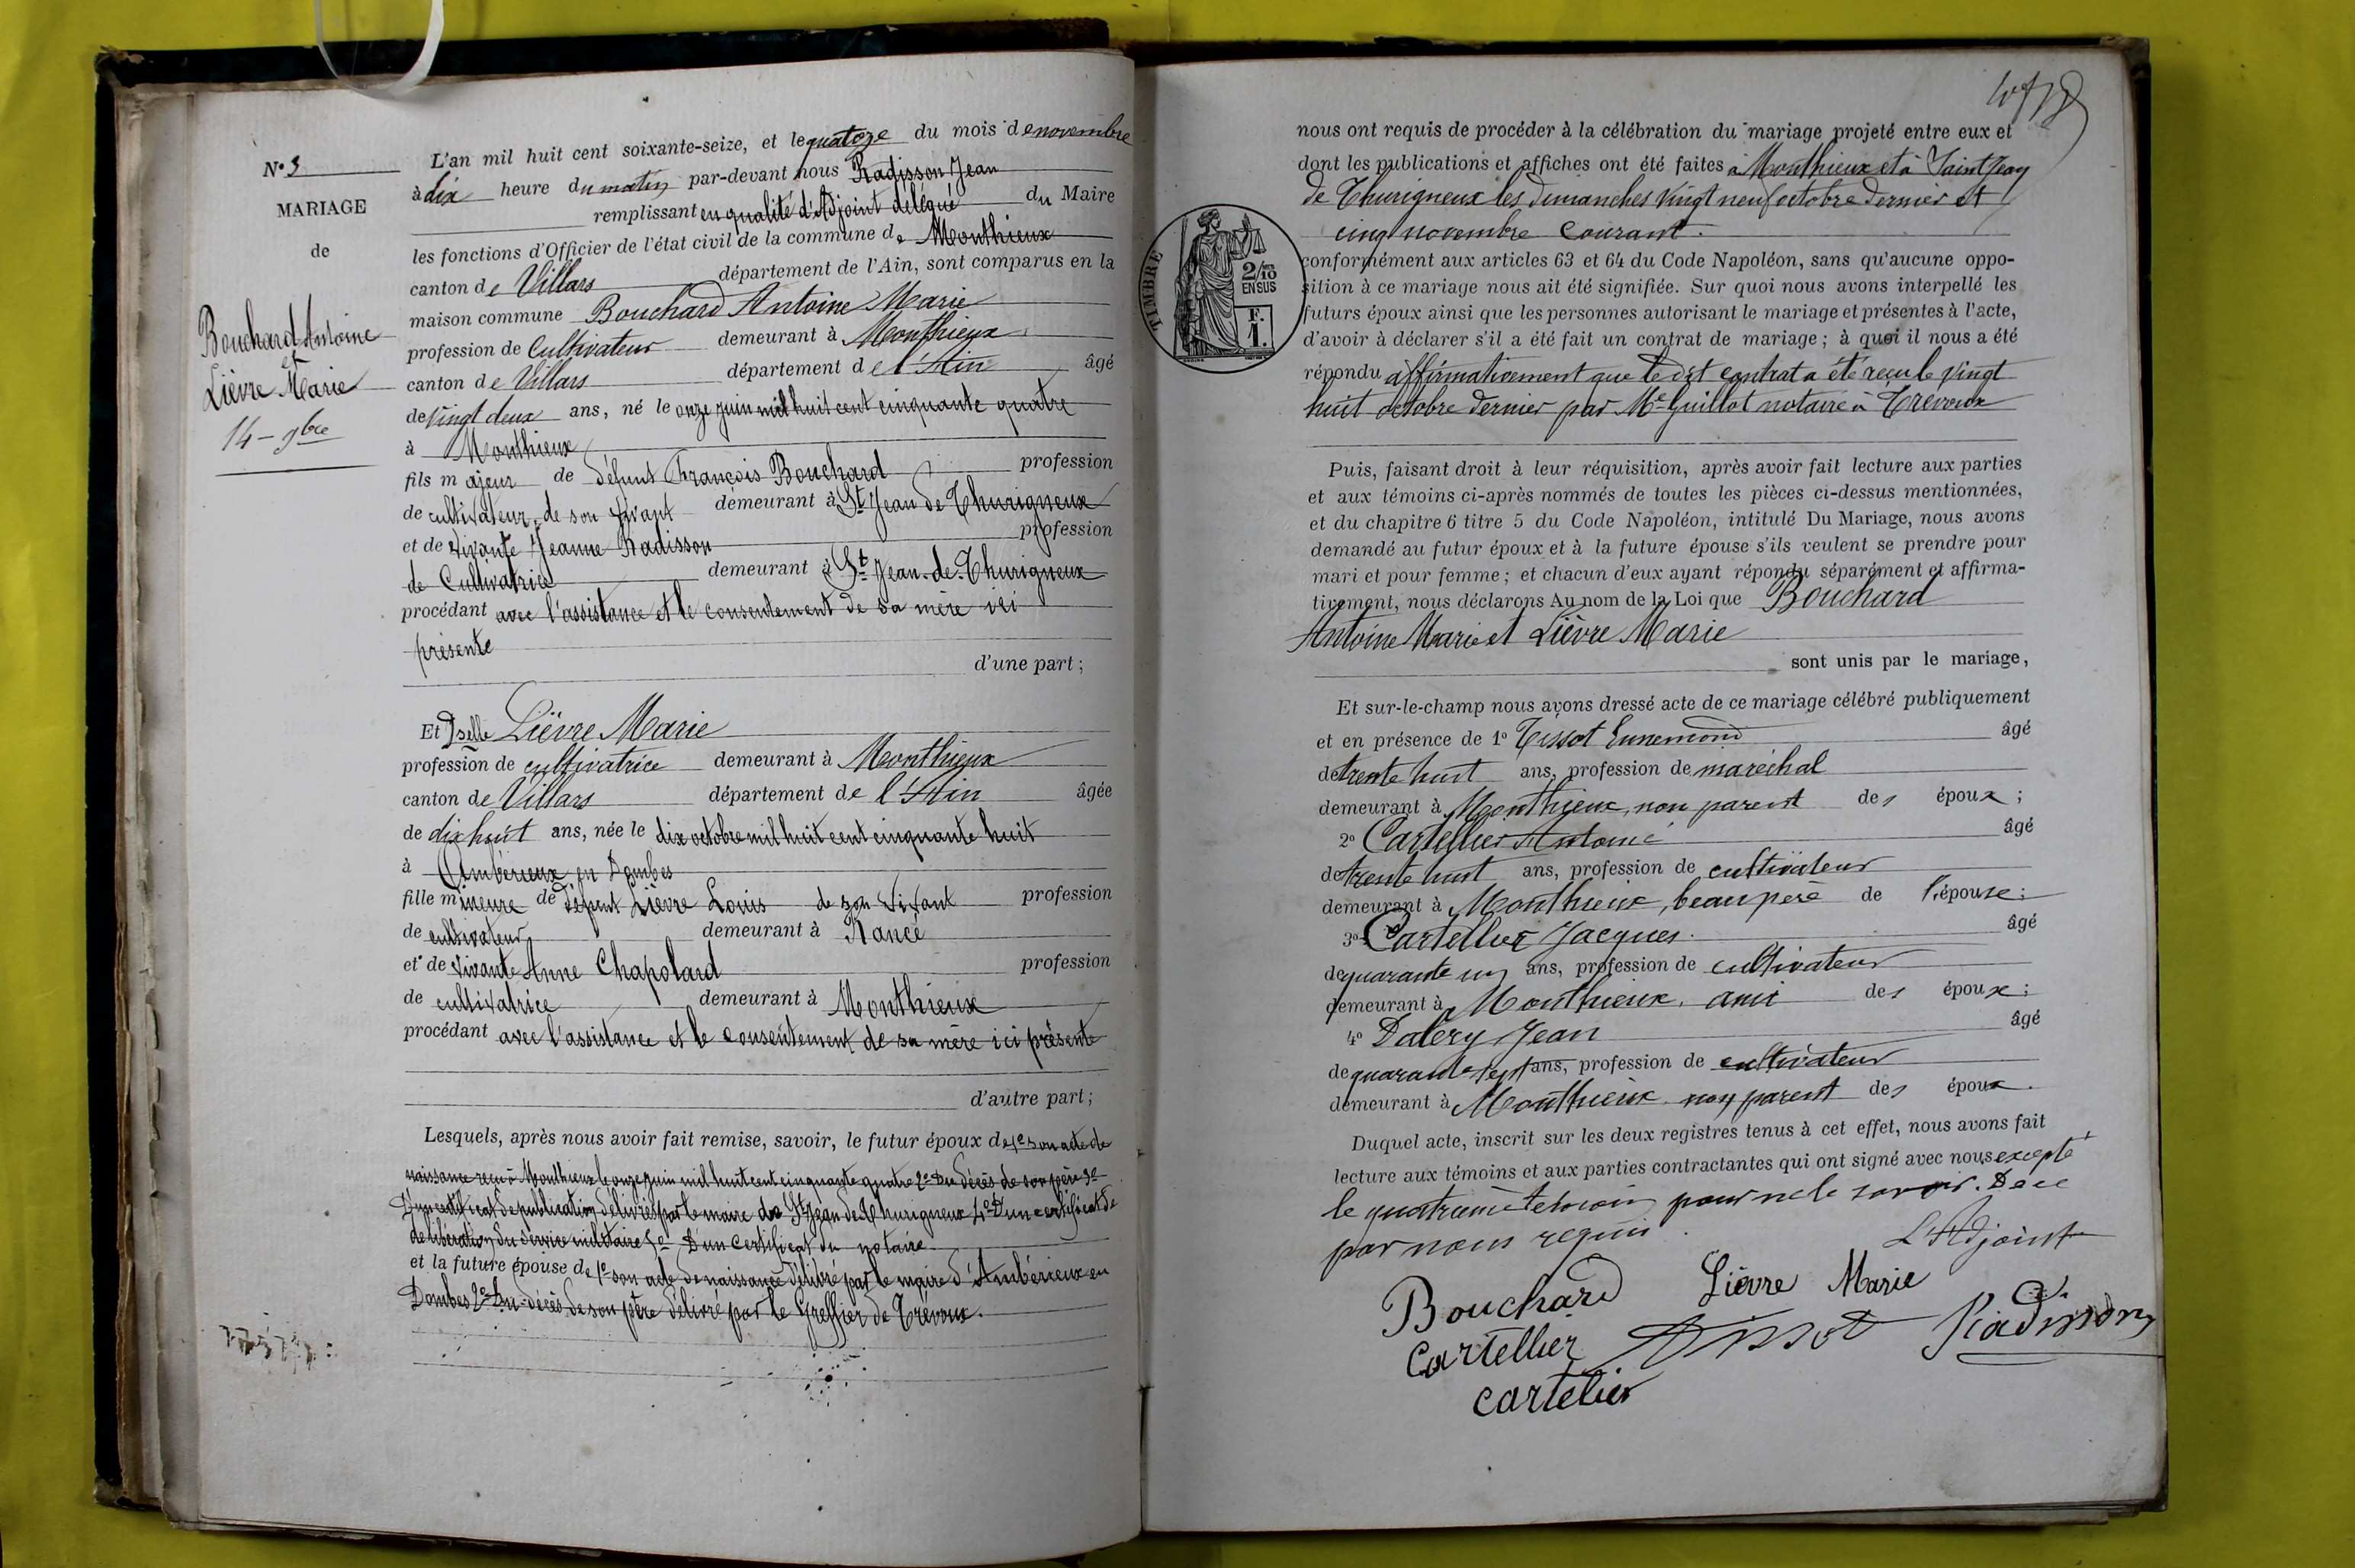 N° 3
MARIAGE
de
Bouchard Antoine
et
Lièvre Marie
14 - 9bre
L'an mil huit cent soixante-seize, et le quatoze du mois de novembre
à dix heure du matin par-devant nous Radisson Jean
remplissant en qualité d'Adjoint délégué du Maire
les fonctions d'Officier de l'état civil de la commune de Monthieux
canton de Villars département de l'Ain, sont comparus en la
maison commune Bouchard Antoine Marie
profession de Cultivateur demeurant à Monthieux
canton de Villars département de l'Ain âgé
de vingt deux ans, né le onze juin mil huit cent cinquante quatre
à Monthieux
fils majeur de défunt François Bouchard profession
de cultivateur de son vivant demeurant à St Jean de Thurigneux
et de vivante Jeanne Radisson profession
de Cultivatrice demeurant à St Jean-de-Thurigneux
procédant avec l'assistance et le consentement de sa mère ici
présente
d'une part;
Et Dselle Lièvre Marie
profession de cultivatrice demeurant à Monthieux
canton de Villars département de l'Ain âgée
de dix huit ans, née le dix octobre mil huit cent cinquante huit
à Ambérieux en Dombes
fille mineure de défunt Lièvre Louis de son vivant profession
de cultivateur demeurant à Rancé
et de vivante Anne Chapolard profession
de cultivatrice demeurant à Monthieux
procédant avec l'assistance et le consentement de sa mère ici présente
d'autre part;
Lesquels, après nous avoir fait remise, savoir, le futur époux de 1° son acte de
naissance reçu à Monthieux le onze juin mil huit cent cinquante quatre 2° Du décès de son père 3°
D'un certificat de publication délivrés par le maire de St Jean de Thurigneux 4° D'un certificat de
de libération du service militaire 5° D'un certificat du notaire
et la future épouse de 1° son acte de naissance délivré par le maire d'Ambérieux en
Dombes 2° Du décès de son père délivré par le Greffier de Trévoux.
nous ont requis de procéder à la célébration du mariage projeté entre eux et
dont les publications et affiches ont été faites à Monthieux et à Saint Jean
de Thurigneux les dimanches vingt neuf octobre dernier et
cinq novembre courant.
TIMBRE
2/10
EN SUS
F.
1.
conformément aux articles 63 et 64 du Code Napoléon, sans qu'aucune oppo-
sition à ce mariage nous ait été signifiée. Sur quoi nous avons interpellé les
futurs époux ainsi que les personnes autorisant le mariage et présentes à l'acte,
d'avoir à déclarer s'il a été fait un contrat de mariage; à quoi il nous a été
répondu affirmativement que le dit contrat a été reçu le vingt
huit octobre dernier par Me Guillot notaire à Trévoux
Puis, faisant droit à leur réquisition, après avoir fait lecture aux parties
et aux témoins ci-après nommés de toutes les pièces ci-dessus mentionnées,
et du chapitre 6 titre 5 du Code Napoléon, intitulé Du Mariage, nous avons
demandé au futur époux et à la future épouse s'ils veulent se prendre pour
mari et pour femme; et chacun d'eux ayant répondu séparément et affirma-
tivement, nous déclarons Au nom de la Loi que Bouchard
Antoine Marie et Lièvre Marie
sont unis par le mariage,
Et sur-le-champ nous avons dressé acte de ce mariage célébré publiquement
et en présence de 1° Tissot Ennemond âgé
de trente huit ans, profession de maréchal
demeurant à Monthieux, non parent des époux;
2° Cartellier Antoine âgé
de trente huit ans, profession de cultivateur
demeurant à Monthieux, beau père de l'épouse;
3° Cartellier Jacques. âgé
de quarante un ans, profession de cultivateur
demeurant à Monthieux, ami des époux;
4° Daléry Jean âgé
de quarante sept ans, profession de cultivateur
demeurant à Monthieux non parent des époux.
Duquel acte, inscrit sur les deux registres tenus à cet effet, nous avons fait
lecture aux témoins et aux parties contractantes qui ont signé avec nous excepté
le quatrième témoin pour ne le savoir. De ce
par nous requis. L'Adjoint
Bouchard Lièvre Marie
Cartellier Tissot Radisson
cartelier